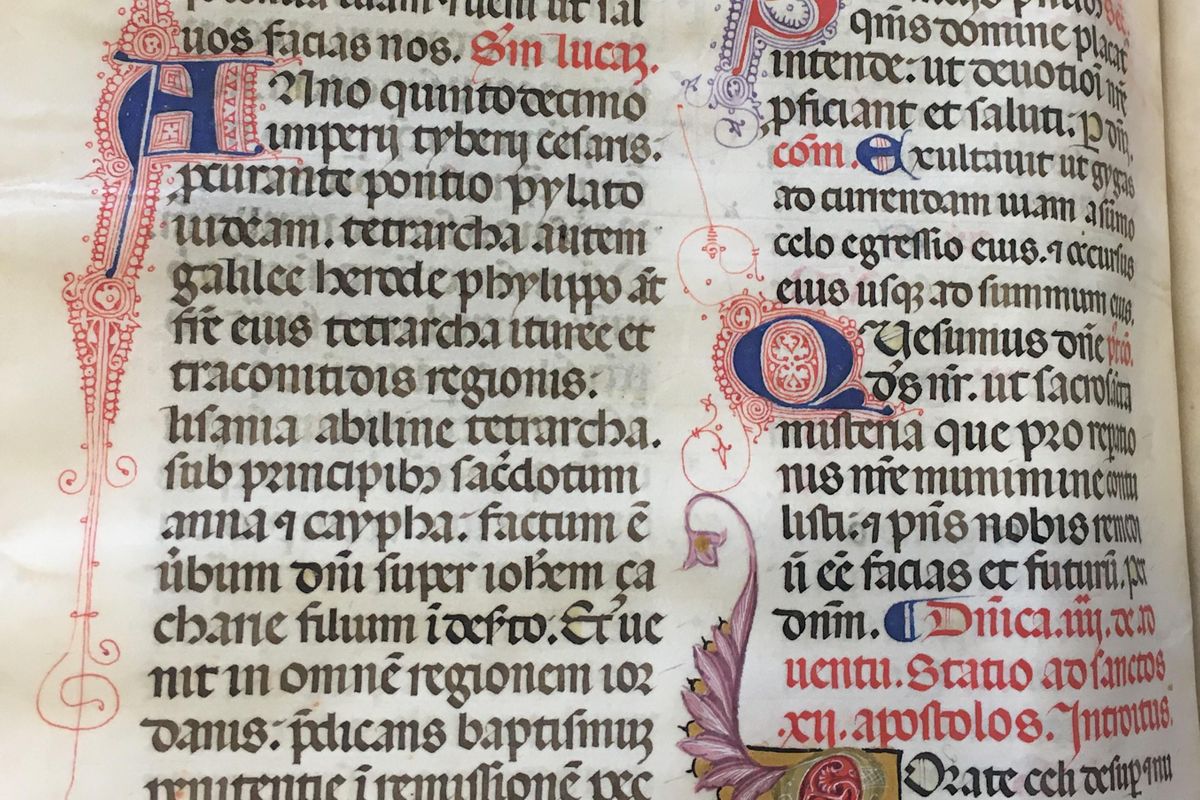 uos facias nos. Scďm lucaꝫ.
ANno quintodecimo
imperij tyberij cesaris.
ꝓcurante pontio pylato
iudeam. tetrarcha autem
galilee herode phylippo aūt
fr̄e eius tetrarcha ituree et
traconitidis regionis:
lisania abiline tetrarcha.
sub principibꝫ sac̄dotum
anna ⁊ caypha: factum ē
u̓bum dn̄i super ioh̄em ça
charie filium ī deẜto. Et ue
nit in omnē regionem ior
danis: p̄dicans baptismuꝫ
penitentie ī remissionē pec
qm̄s domine placat
intende: ut deuotiōi nr̄e
ꝓficiant et saluti. P dn̄.
cōm. Exultauit ut gygas
ad currendam uiam a sūmo
celo egressio eius. ⁊ occursus
eius usqꝫ ad summum eius.
QUesumus dn̄e p̄cō.
ds̄ nr̄. ut sacrosācta
misteria que pro reꝑatio
nis nr̄e munimine contu
listi: ⁊ p̄ns nobis remedi
ū eē facias et futurū. Per
dn̄m. ¶ Dn̄ica. iiij. de ad
uentu. Statio ad sanctos
.xij. apostolos. Introitus.
ROrate celi desuꝑ ⁊ nu